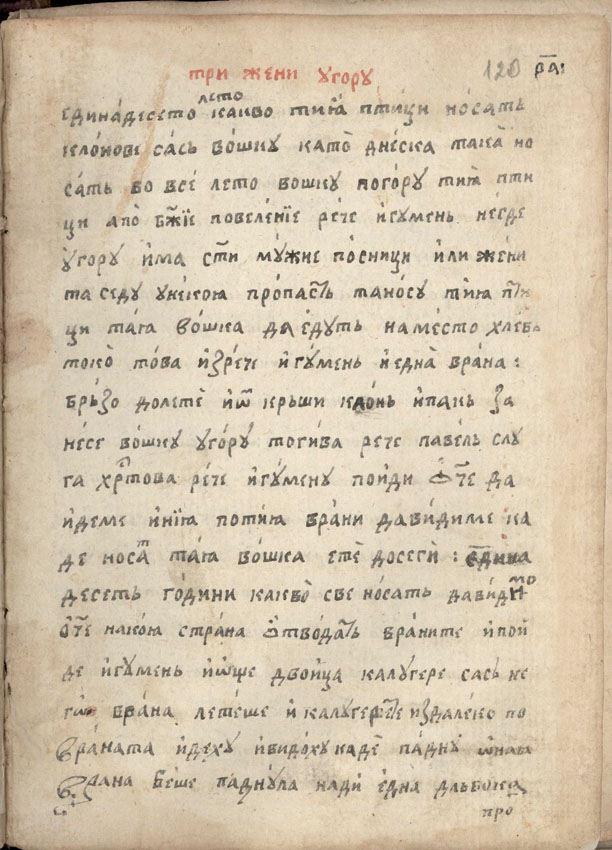 три жени угору
120 в҃а:
лето
единáдесето какво тиꙗ̀ птици но́сать
клóнове сась вóшку като̀ днеска така̀ но
сать во все лето вошку погору тиꙗ пти
ци апо̀ бж҃їе повелéнїе рече игумень негде
угору има ст҃и му́жие пóсници или жéни
та седу унекою пропасть та нóсу тиꙗ пти
ци таꙗ вóшка да едуть на место хлебь
токо̀ това изрече игумень и една врана:
брьзо долетѐ и ѿ крьши клонь и пакь за
несе вóшку угору тогива рече павель слу
га хр҃това рече игумену пойди ѻ҃че да
идеме и нїꙗ по тиꙗ врани да видиме ка
де носат таꙗ вóшка ете досеги: едина
десеть години какво̀ све носать да видимо
ѻ҃че на коꙗ страна ѻтводать враните и пой
де игумень и ѿще двоица калугере сась не
гѡ врана летеше и калугерете издалеко по
враната идеху и видоху кадѐ падну ѡнаꙗ
врана беше паднула на ди една дльбока
про